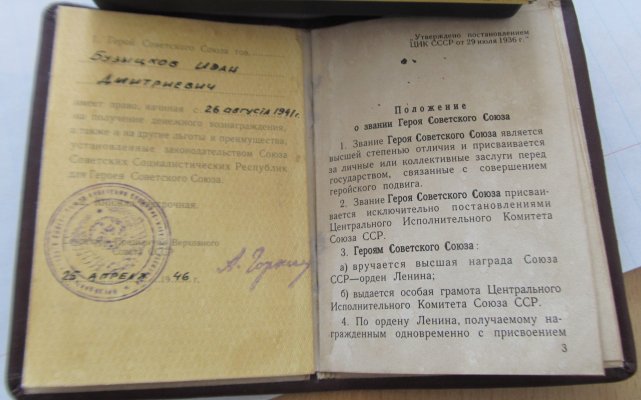 1. Герой Советского Союза тов.
Бузыцков Иван
Дмитриевич
имеет право, начиная с 26 августа 1941 г.
на получение денежного вознаграждения,
а также и на другие льготы и преимущества,
установленные законодательством Союза
Советских Социалистических Республик
для Героев Советского Союза.
Верховного
25 АПРЕЛЯ 1946 г.
А. Горкин
"Утверждено постановлением
ЦИК СССР от 29 июля 1936 г."
Положение
о звании Героя Советского Союза
1. Звание Героя Советского Союза является
высшей степенью отличия и присваивается
за личные или коллективные заслуги перед
государством, связанные с совершением
геройского подвига.
2. Звание Героя Советского Союза присваи-
вается исключительно постановлениями
Центрального Исполнительного Комитета
Союза ССР.
3. Героям Советского Союза :
а) вручается высшая награда Союза
ССР—орден Ленина;
б) выдается особая грамота Центрального
Исполнительного Комитета Союза ССР.
4. По ордену Ленина, получаемому на-
гражденным одновременно с присвоением
3